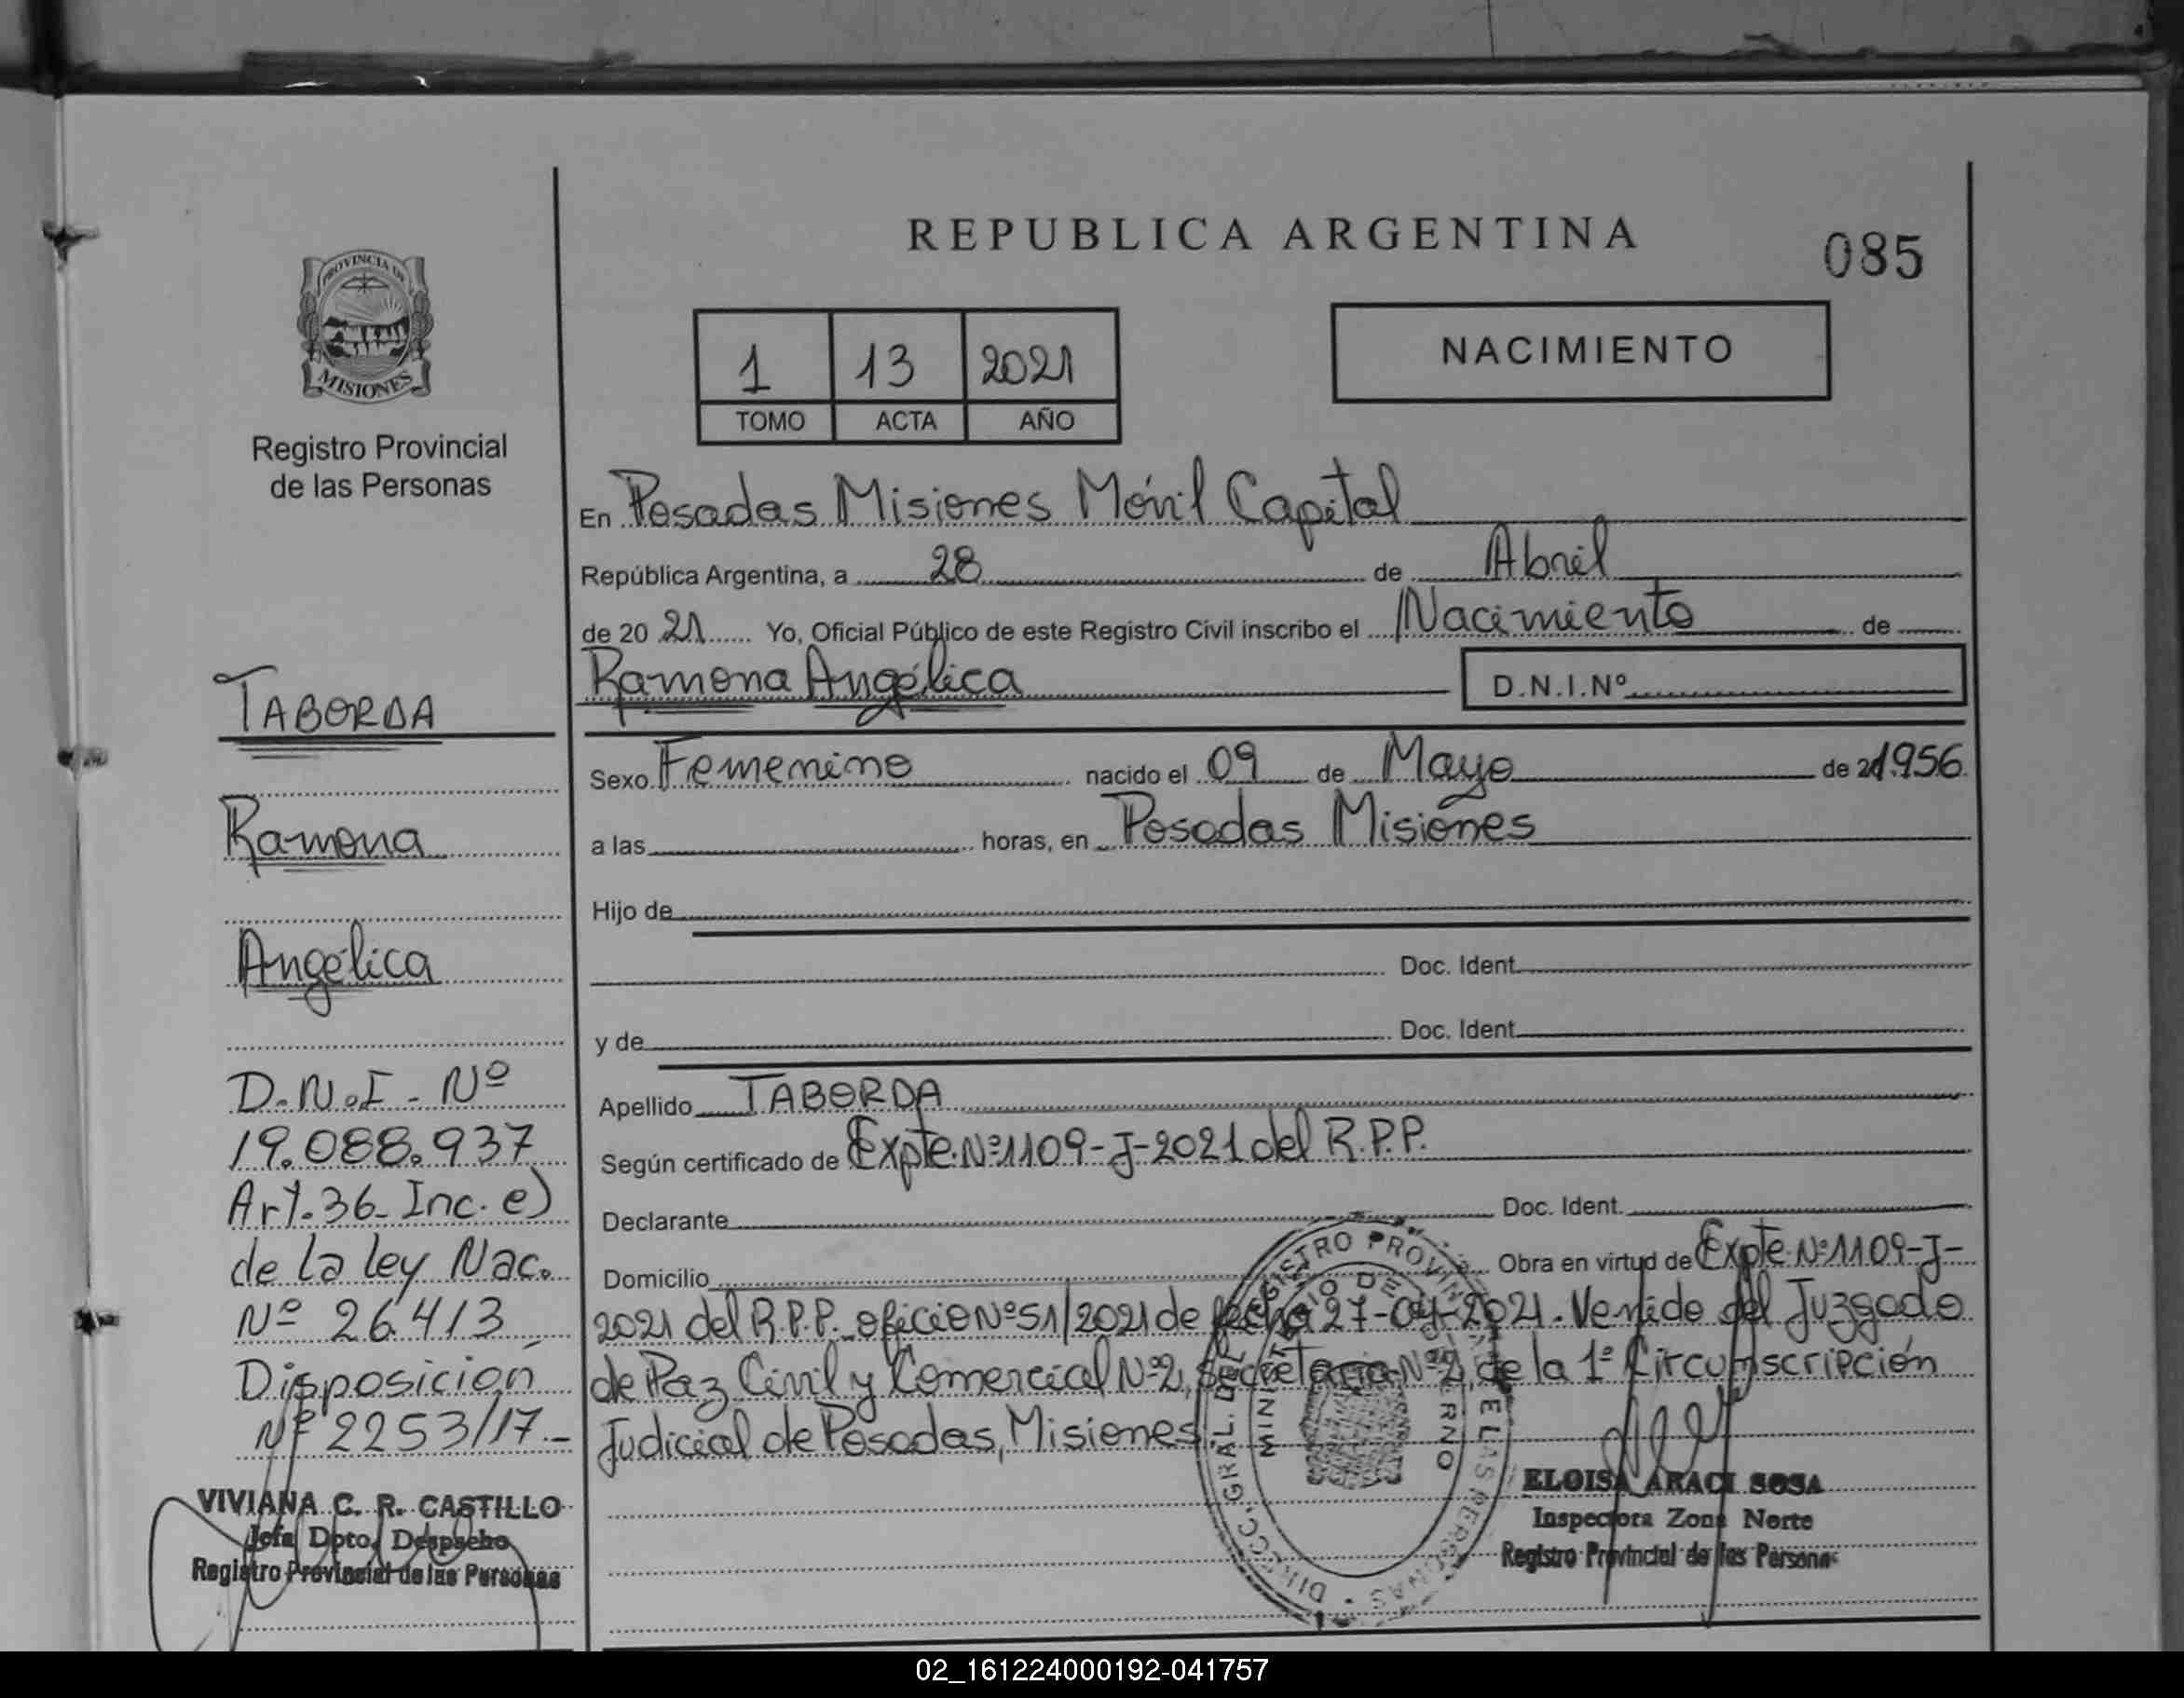 REPUBLICA ARGENTINA
085
PROVINCIA DE
MISIONES
Registro Provincial
de las Personas
1 13 2021
TOMO ACTA AÑO
NACIMIENTO
En Posadas Misiones Móvil Capital
República Argentina, a 28 de Abril
de 20 21 Yo, Oficial Público de este Registro Civil inscribo el Nacimiento de
Ramona Angélica D.N.I.Nº
Sexo Femenino nacido el 09 de Mayo de 1956
a las horas, en Posadas Misiones
Hijo de
Doc. Ident.
y de Doc. Ident.
Apellido TABORDA
Según certificado de Expte. Nº 1109-J-2021 del R.P.P.
Declarante Doc. Ident.
Domicilio Obra en virtud de Expte. Nº 1109-J-
2021 del R.P.P. oficio Nº 51/2021 de fecha 27-04-2021. Venido del Juzgado
de Paz Civil y Comercial Nº 2, Secretaria Nº 2, de la 1º Circunscripción
Judicial de Posadas, Misiones
TABORDA
Ramona
Angélica
D.N.I - Nº
19.088.937
Art. 36 - Inc. e)
de la ley Nac.
Nº 26.413
Disposición
Nº 2253/17.-
VIVIANA C. R. CASTILLO
Jefa Dpto. Despacho
Registro Provincial de las Personas
ELOISA ARACI SOSA
Inspectora Zona Norte
Registro Provincial de las Personas
02_161224000192-041757